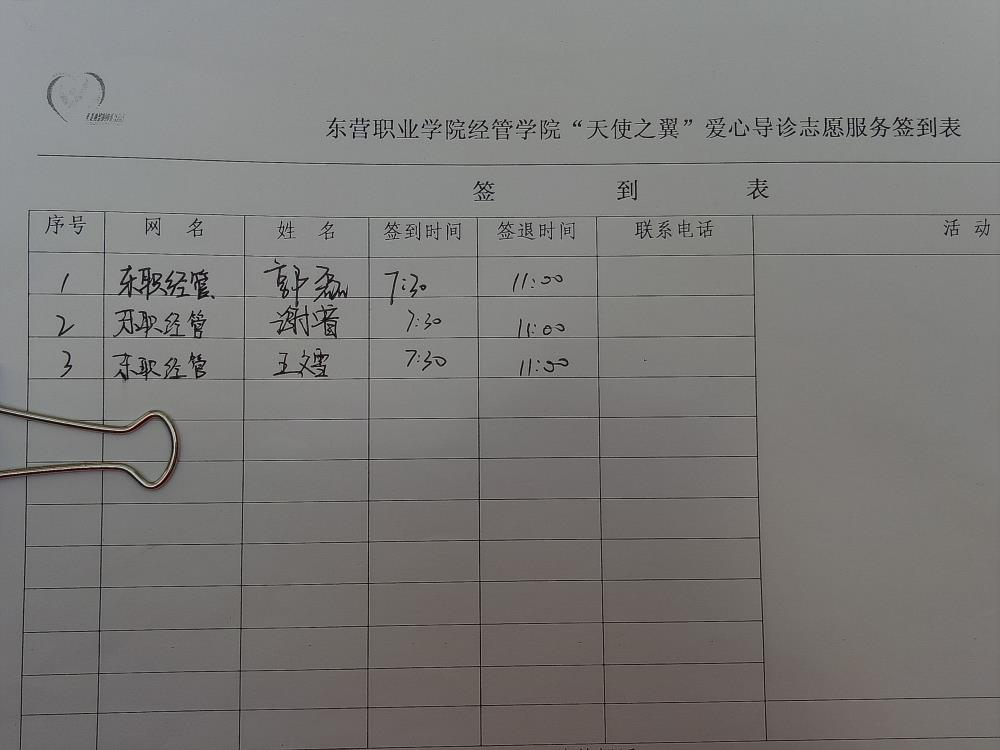 东营职业学院经管学院“天使之翼”爱心导诊志愿服务签到表
签 到 表
序号 网 名 姓 名 签到时间 签退时间 联系电话 活 动
1 东职经管 郭磊 7:30 11:00
2 东职经管 谢睿 7:30 11:00
3 东职经管 王文雪 7:30 11:00